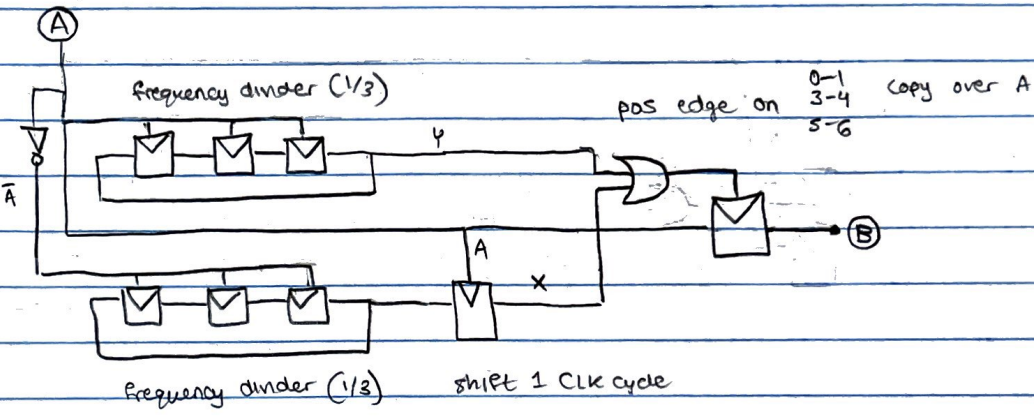 A
frequency divider (1/3)
pos edge on 0-1 copy over A
3-4
5-6
Y
Ā
A
B
X
frequency divider (1/3)
shift 1 CLK cycle